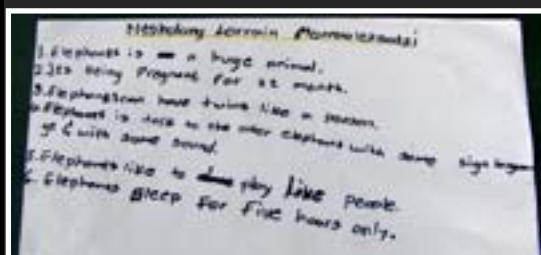 1. Elephants is a huge animal.
2. Its being Pregnant For 22 month.
3. Elephants can have twins like a person.
4. Elephants is to the other elephants with some sign
with some sound.
5. Elephants like to play like people.
6. Elephants sleep for five hours only.